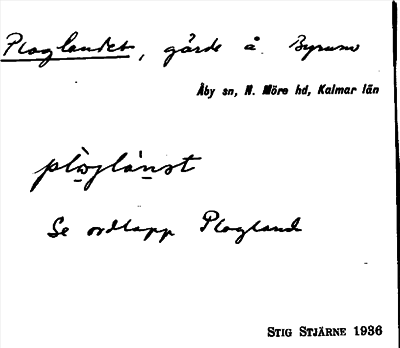 Ploglandet, gärde å Byrum
Åby sn, N. Möre hd, Kalmar län
plòglánst
Se ordlapp Plogland
STIG STJÄRNE 1936